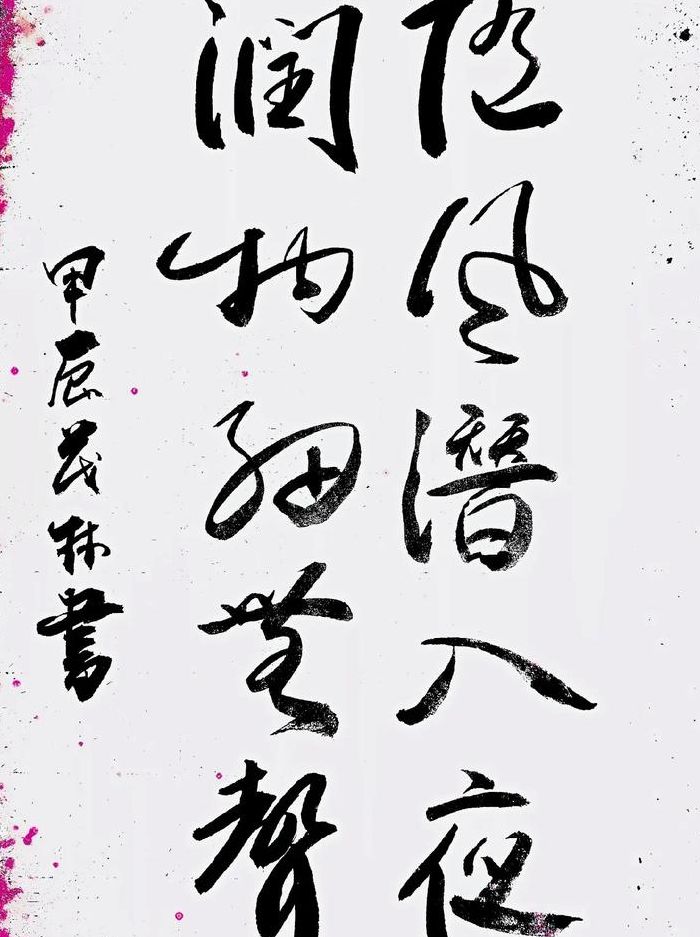 随风潜入夜
润物細無聲
甲辰茂林書